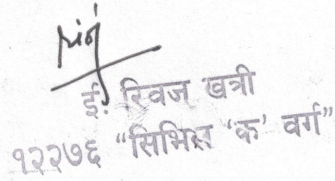 ई. रिवज खत्री
१२२७६ “सिभिल ‘क’ वर्ग”